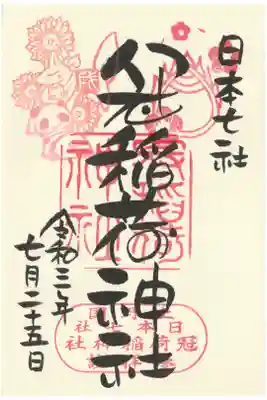 日本七社
冠稲荷神社
令和三年
七月二十五日
日本七社
冠稲荷神社